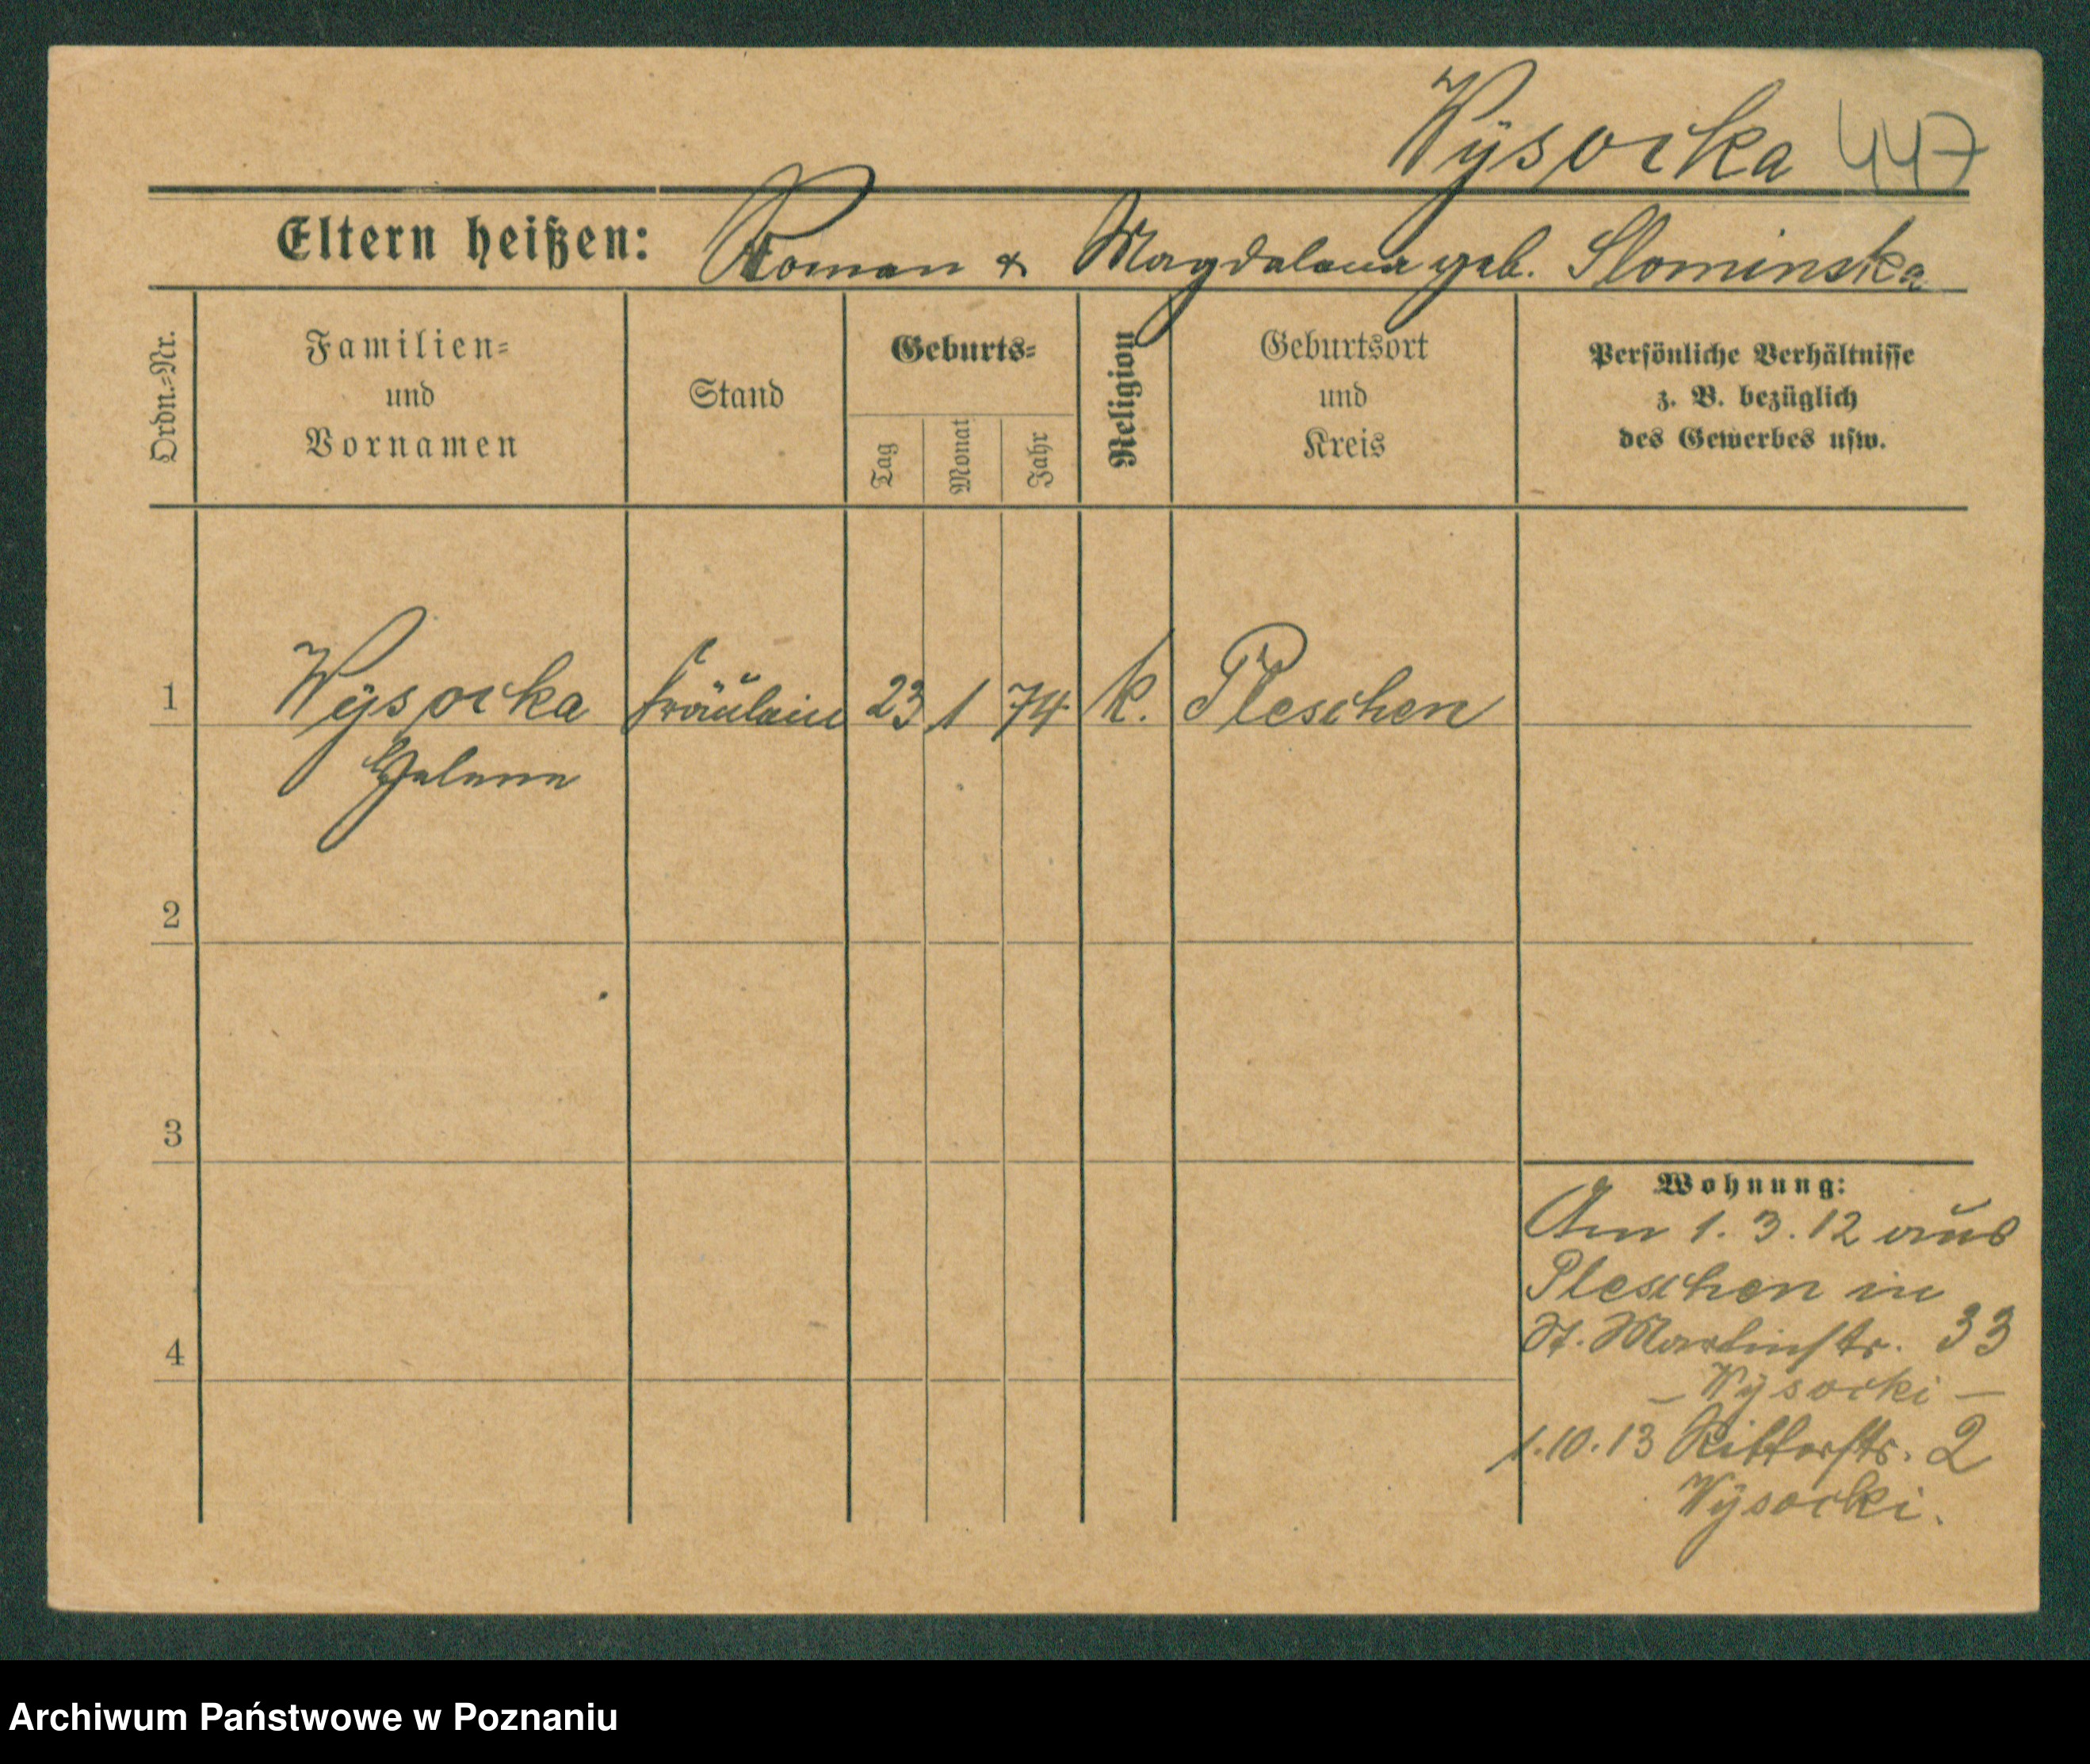 Wysocka 447
Eltern heißen: Roman & Magdalena geb. Slominska
Ordn.=Nr.
Familien=
und
Vornamen
Stand
Geburts=
Tag
Monat
Jahr
Religion
Geburtsort
und
Kreis
Persönliche Verhältnisse
z. B. bezüglich
des Gewerbes usw.
1 Wysocka Fräulein 23 1 74 k. Pleschen
Helene
2
3
4
Wohnung:
Am 1. 3. 12 aus
Pleschen in
St. Martinstr. 33
– Wysocki –
1.10.13 Ritterstr. 2
Wysocki.
Archiwum Państwowe w Poznaniu